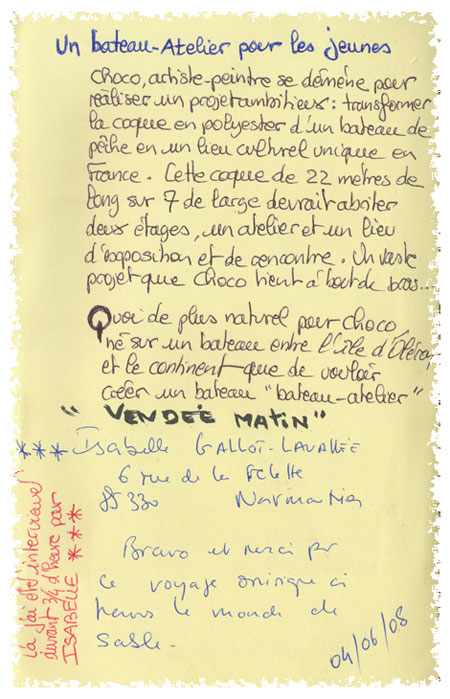 Un bateau-Atelier pour les jeunes
Choco, artiste-peintre se démène pour
réaliser un projet ambitieux : transformer
la coque en polyester d'un bateau de
pêche en un lieu culturel unique en
France. Cette coque de 22 mètres de
long sur 7 de large devrait abriter
deux étages, un atelier et un lieu
d'exposition et de rencontre. Un vaste
projet que Choco tient à bout de bras...
Quoi de plus naturel pour Choco,
né sur un bateau entre l'île d'Oléron
et le continent que de vouloir
créer un bateau "bateau-atelier"
"VENDÉE MATIN"
*** Isabelle GALLOT-LAVALLÉE
6 rue de la
85330 Noirmoutier
Bravo et merci pr
ce voyage onirique
le monde de
Sable.
04/06/08
là j'ai été interviewé
durant 3/4 d'heure par
ISABELLE ***